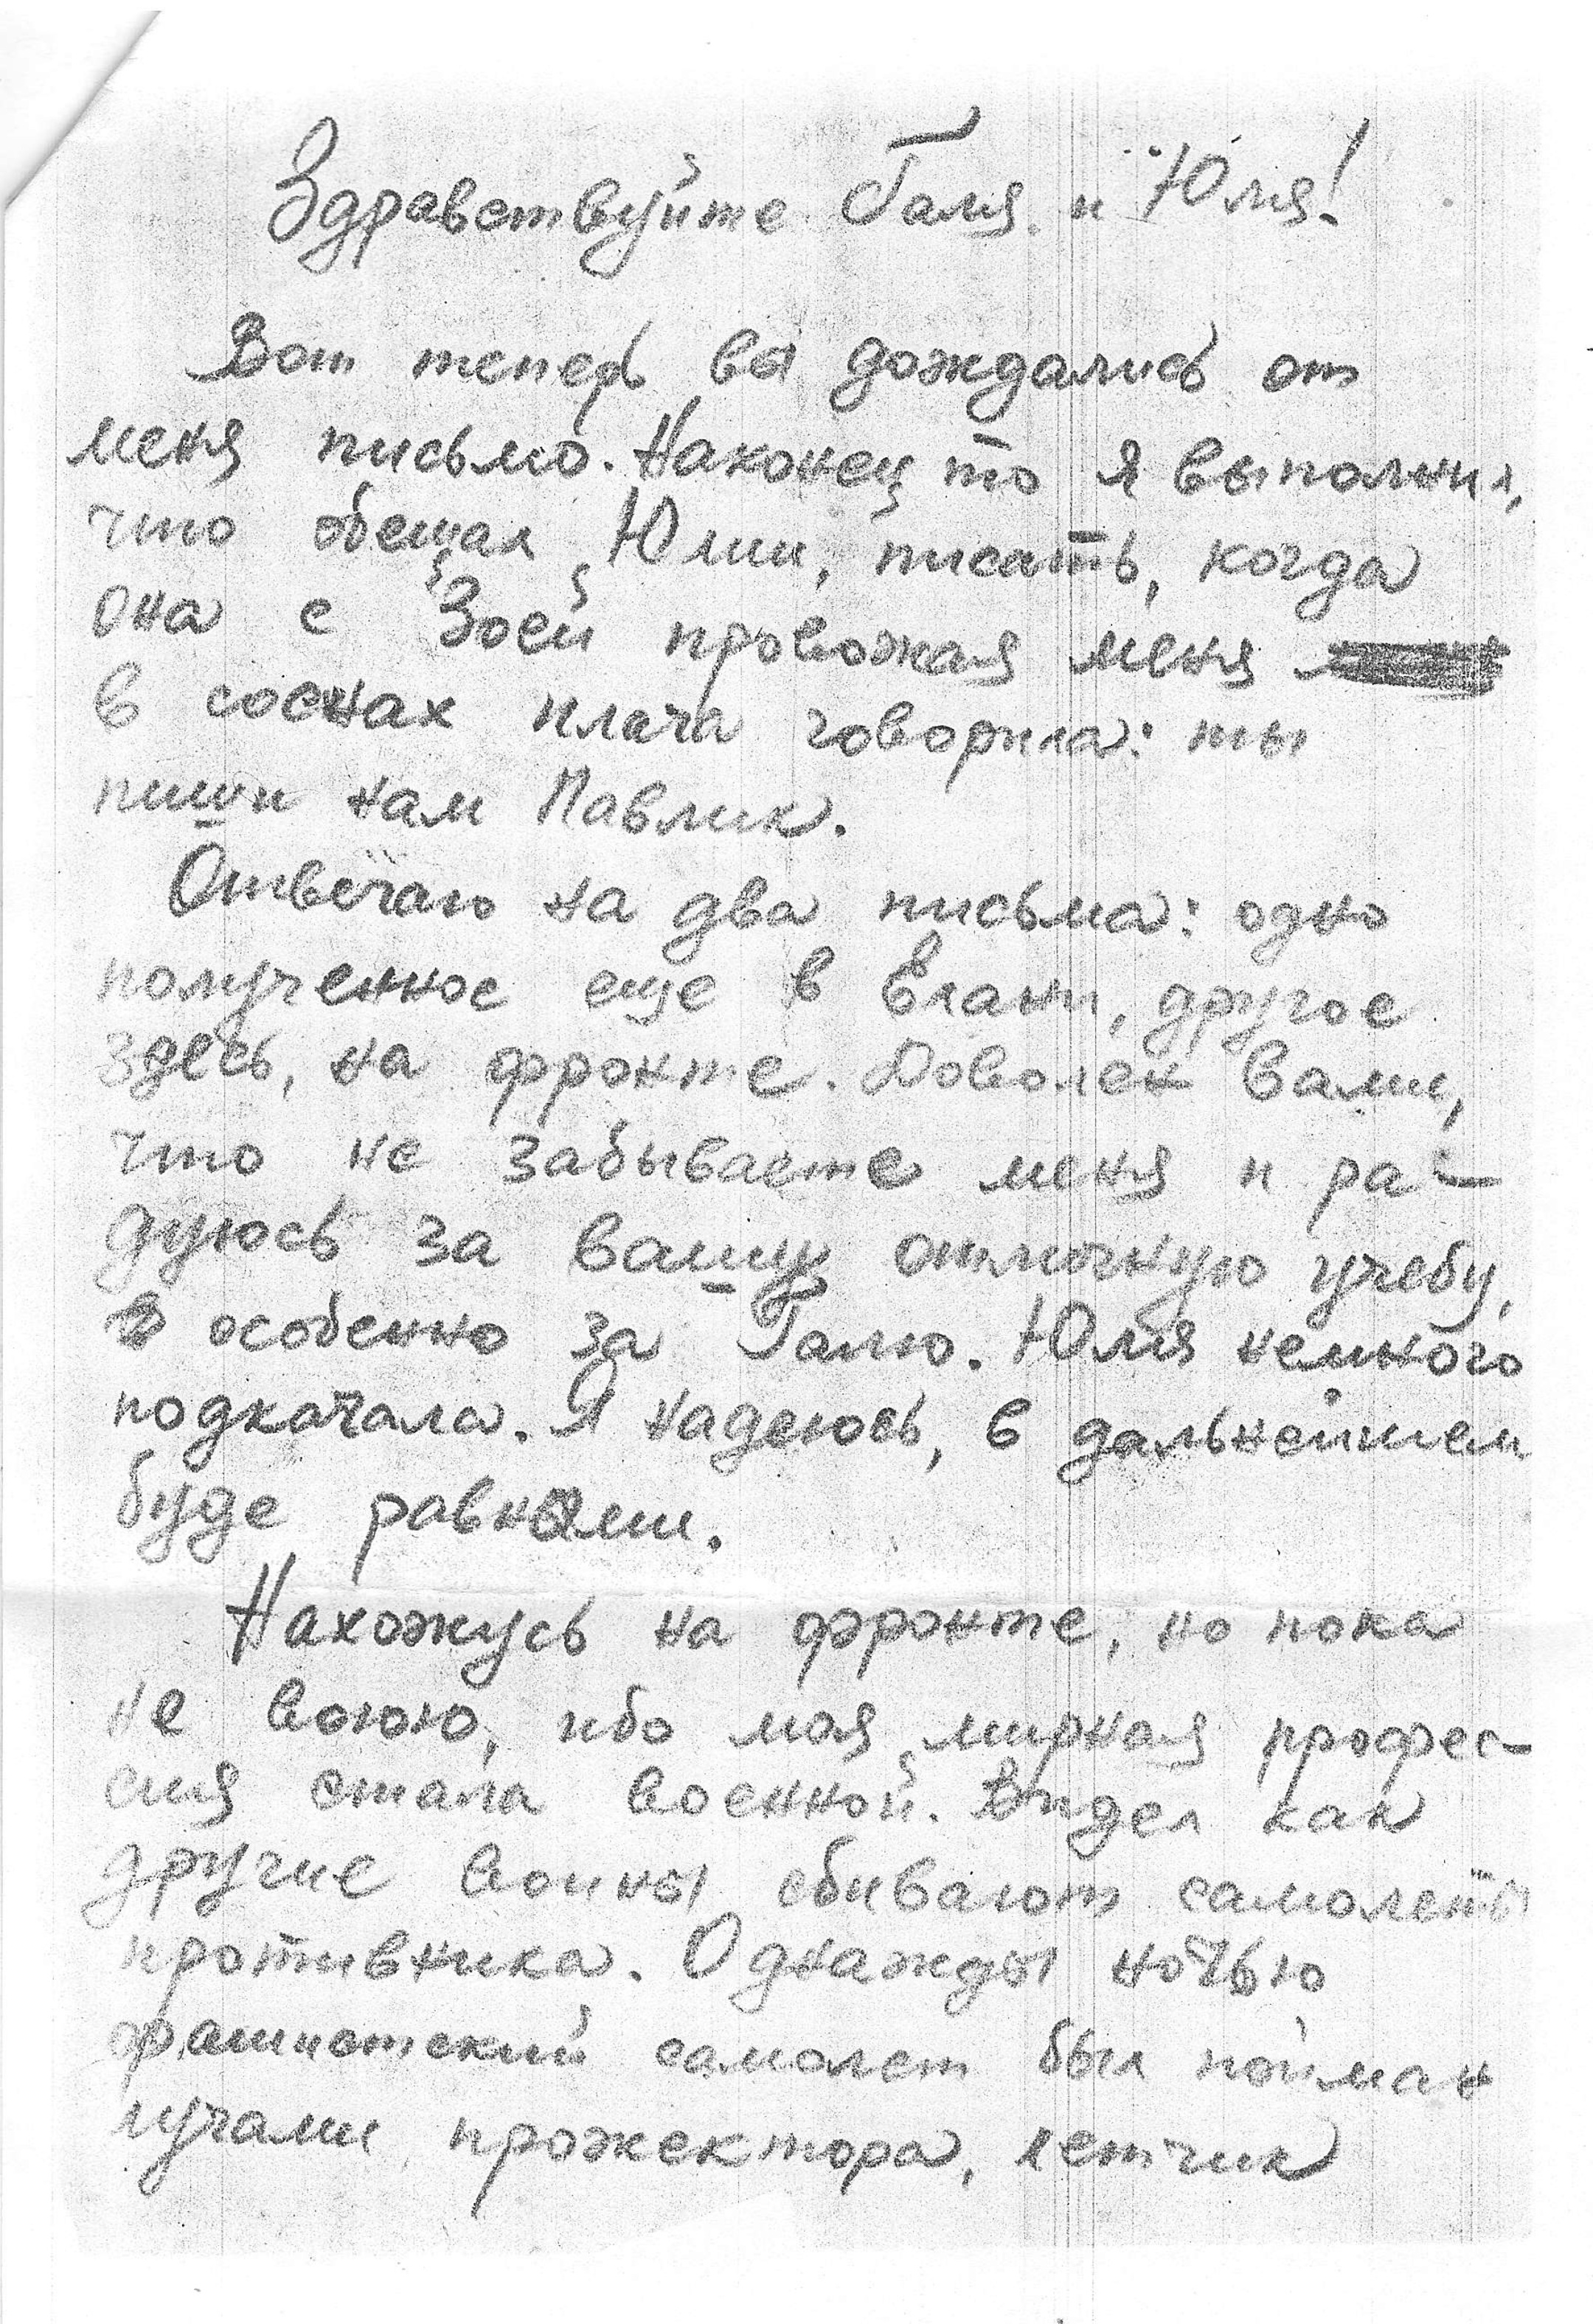 Здравствуйте Галя и Юля!
Вот теперь вы дождались от
меня письмо. Наконец то я выполнил,
что обещал Юли, писать, когда
она с Зоей провожая меня
в соснах плача говорила: ты
пиши нам Павлик.
Отвечаю на два письма: одно
полученное еще в Елани, другое
здесь, на фронте. Доволен вами,
что не забываете меня и ра-
дуюсь за вашу отличную учебу,
в особенно за Галю. Юля немного
подкачала. Я надеюсь, в дальнейшем
буде равными.
Нахожусь на фронте, но пока
не воюю, ибо моя мирная профес-
сия стала военной. Видел как
другие воины сбивают самолеты
противника. Однажды ночью
фашистский самолет был пойман
лучами прожектора, летчик